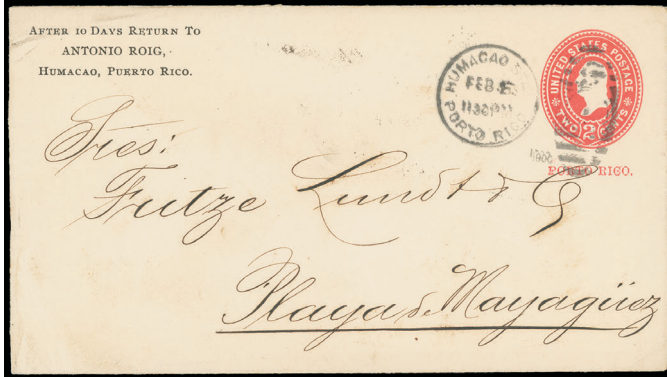 AFTER 10 DAYS RETURN TO
ANTONIO ROIG,
HUMACAO, PUERTO RICO.
HUMACAO
FEB
1130PM
PORTO RICO
UNITED STATES POSTAGE
TWO 2 CENTS
PORTO RICO.
Sres:
Fritze Lundt & Co
Playa de Mayagüez